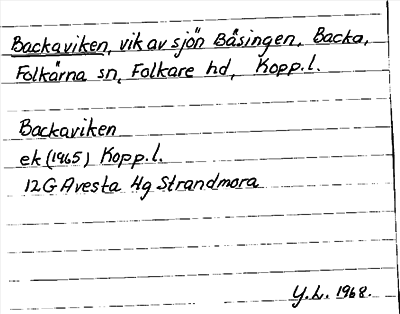 Backaviken, vik av sjön Bäsingen, Backa,
Folkärna sn, Folkare hd, Kopp.l.
Backaviken
ek (1965) Kopp.l.
12G Avesta 4g Strandmora
Y.L. 1968.